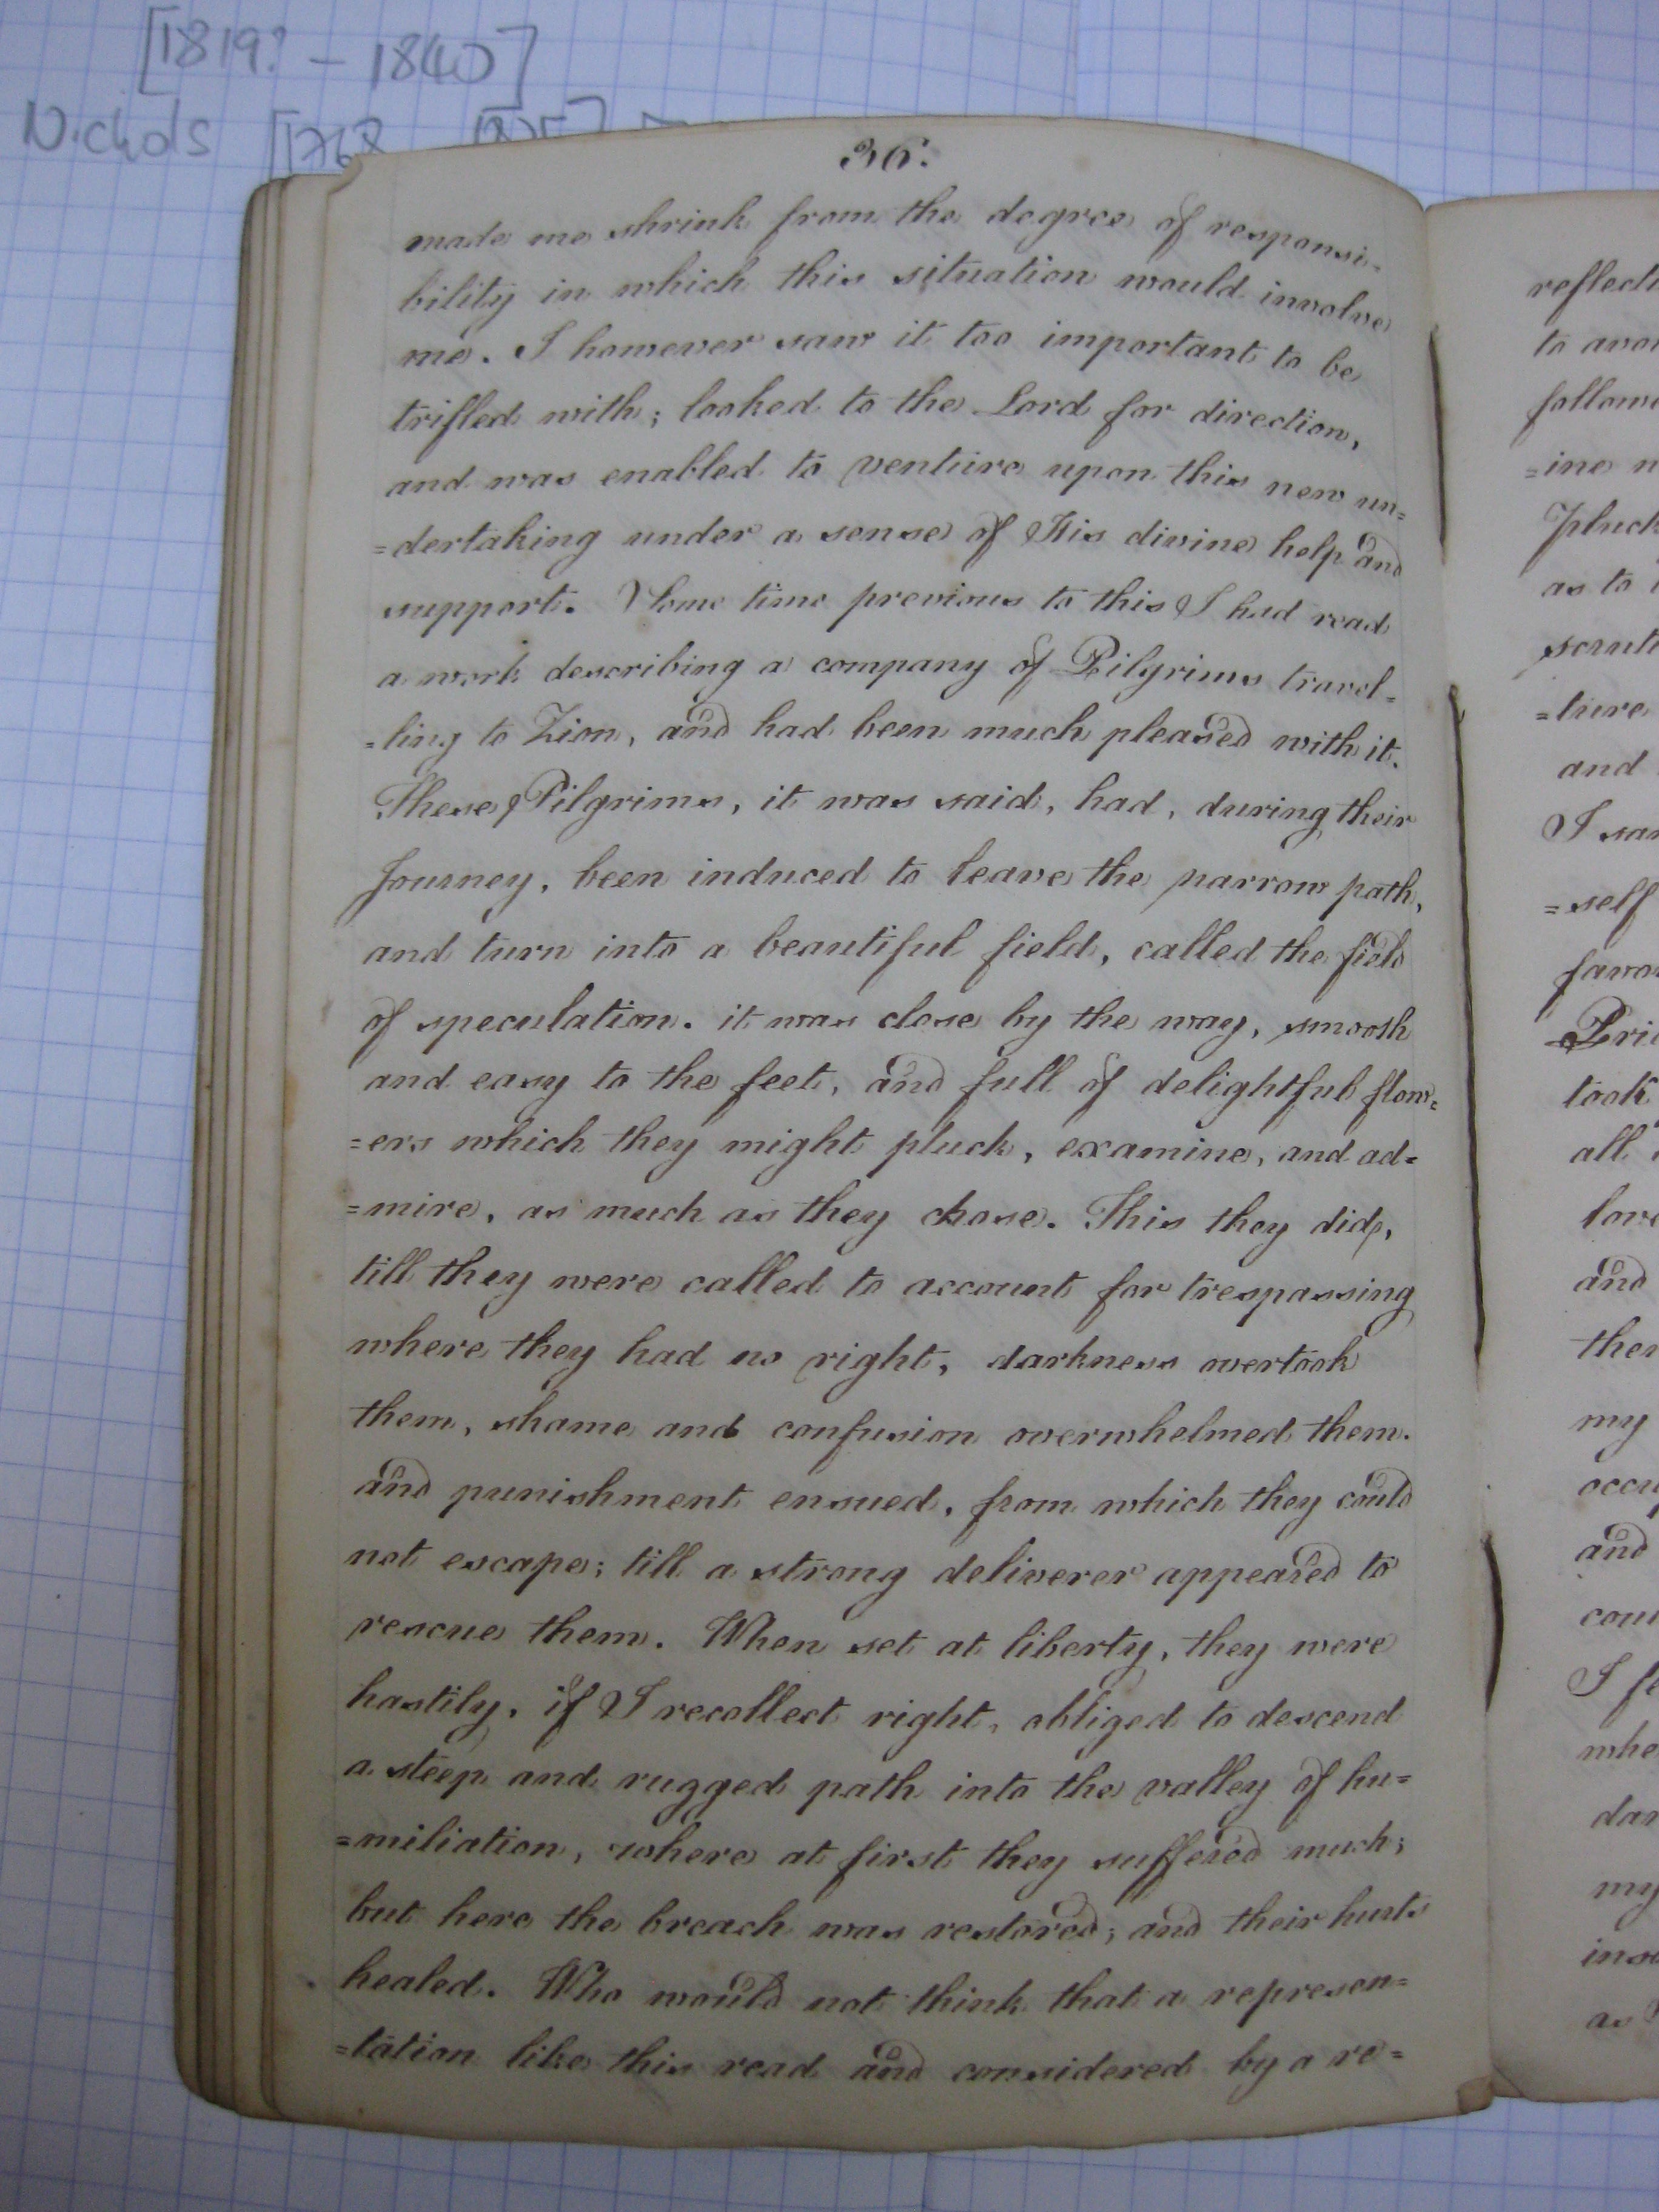 [1819? - 1840]
Nichols [1768
36.
made me shrink from the degree of responsi-
bility in which this situation would involve
me. I however saw it too important to be
trifled with; looked to the Lord for direction,
and was enabled to venture upon this new un=
=dertaking under a sense of His divine help and
support. Some time previous to this I had read
a work describing a company of Pilgrims travel=
=ling to Zion, and had been much pleased with it.
These Pilgrims, it was said, had, during their
Journey, been induced to leave the narrow path,
and turn into a beautiful field, called the field
of speculation. it was close by the way, smoosh
and easy to the feet, and full of delightful flow=
=ers which they might pluck, examine, and ad=
=mire, as much as they chose. This they did,
till they were called to account for trespassing
where they had no right, darkness overtook
them, shame and confusion overwhelmed them.
and punishment ensued, from which they could
not escape; till a strong deliverer appeared to
rescue them. When set at liberty, they were
hastily, if I recollect right, obliged to descend
a steep and rugged path into the valley of hu=
=miliation, where at first they suffered much;
but here the breach was restored; and their hurts
healed. Who would not think that a represen=
=tation like this read and considered by a re=
reflecti
to avoi
follow
=ine
Pluck
as to
scruti
=ture
and
I saw
=self
favo
Pri
took
all
love
and
ther
my
occu
and
cou
I fe
whe
dar
my
inse
as